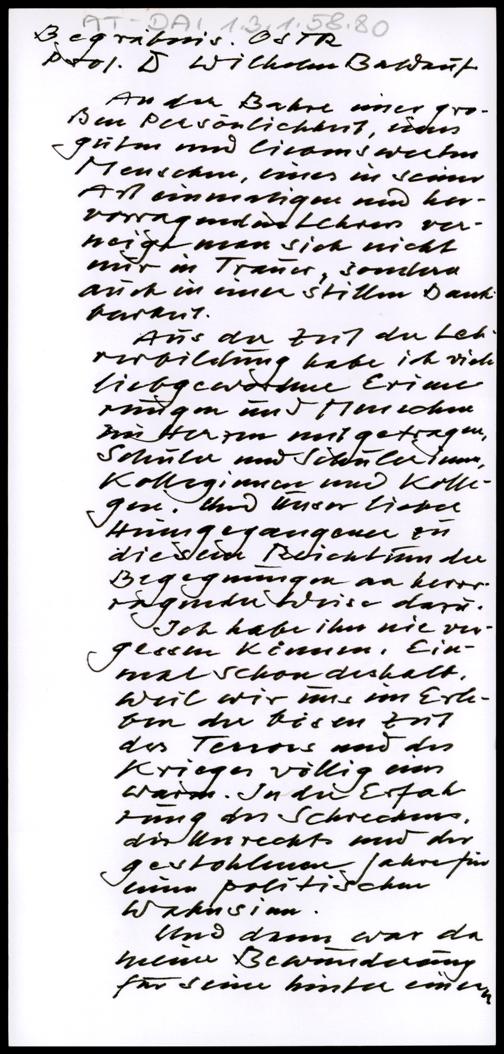 AT-DAI 1.3.1.58.80
Begräbnis. OSTR
Prof. D Wilhelm Baldauf
An der Bahre einer gro-
ßen Persönlichkeit, eines
guten und liebenswerten
Menschen, eines in seiner
Art einmaligen und her-
vorragenden Lehrers ver-
neigt man sich nicht
nur in Trauer, sondern
auch in einer stillen Dank-
barkeit.
Aus der Zeit der Leh-
rerbildung habe ich viele
liebgewordene Erinne
rungen und Menschen
im Herzen mitgetragen,
Schüler und Schülerinnen,
Kolleginnen und Kolle-
gen. Und unser lieber
Heimgegangener
diesem Reichtum der
Begegnungen
ragender Weise dazu.
Ich habe ihn nie ver-
gessen können. Ein-
mal schon deshalb,
weil wir uns im Erle-
ben der bösen Zeit
des Terrors und des
Krieges völlig eins
waren. In der Erfah
rung des Schreckens,
des Unrechts und der
gestohlenen Jahre für
einen politischen
Wahnsinn.
Und dann war da
meine Bewunderung
für seine hinter einem